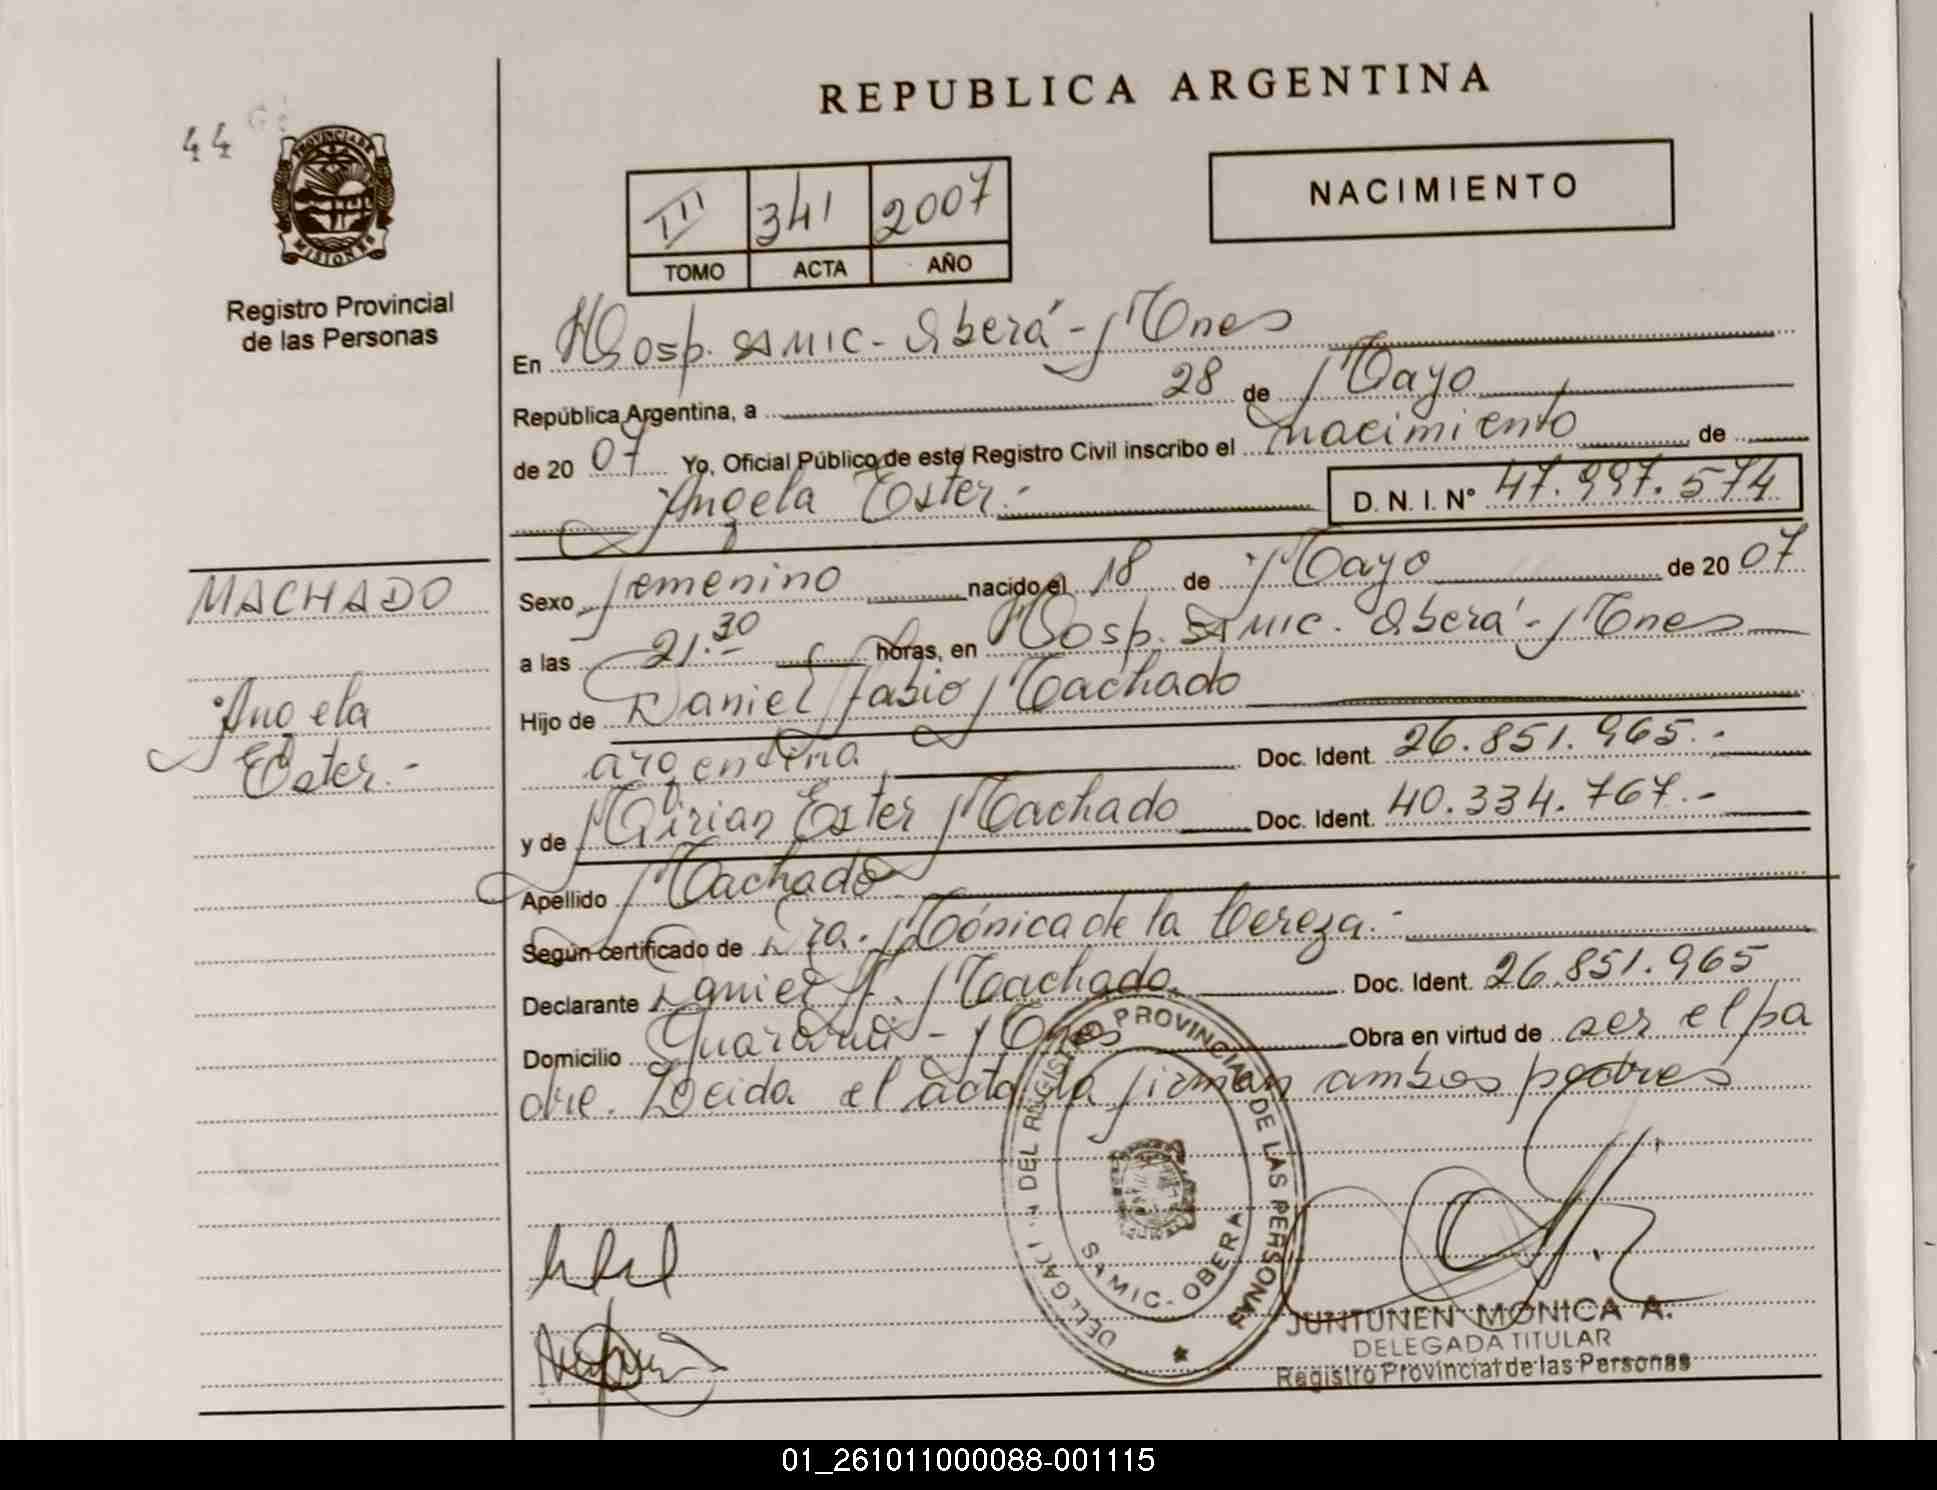 REPUBLICA ARGENTINA
44
PROVINCIA DE
MISIONES
Registro Provincial
de las Personas
III 341 2007
TOMO ACTA AÑO
NACIMIENTO
En Hosp. SAMIC - Oberá - Mnes
República Argentina, a 28 de Mayo
de 20 07 Yo, Oficial Público de este Registro Civil inscribo el nacimiento de
Angela Ester.- D. N. I. Nº 47.997.574
MACHADO
Angela
Ester.-
Sexo femenino nacido el 18 de Mayo de 20 07
a las 21.30 horas, en Hosp. SAMIC. Oberá - Mnes
Hijo de Daniel Fabio Machado
argentina Doc. Ident. 26.851.965.-
y de Mirian Ester Machado Doc. Ident. 40.334.767.-
Apellido Machado
Según certificado de Dra. Mónica de la Cereza.-
Declarante Daniel F. Machado Doc. Ident. 26.851.965
Domicilio Guaraní - Mnes Obra en virtud de ser el pa
dre. Leida el acta la firman ambos padres
DELEGACI N DEL REGISTRO PROVINCIAL DE LAS PERSONAS
SAMIC - OBERA
JUNTUNEN MONICA A.
DELEGADA TITULAR
Registro Provincial de las Personas
01_261011000088-001115